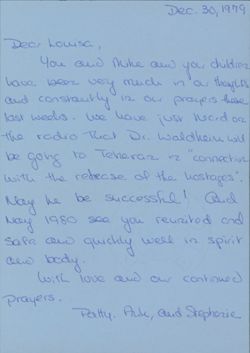 Dec. 30, 1979
Dear Louisa,
You and Mike and your children
have been very much in our thoughts
and constantly in our prayers these
last weeks. We have just heard on
the radio that Dr. Waldheim will
be going to Teheran in "connection
with the release of the hostages".
May he be successful! And
May 1980 see you reunited and
safe and quickly well in spirit
and body.
With love and our continued
prayers.
Patty, and Stephanie